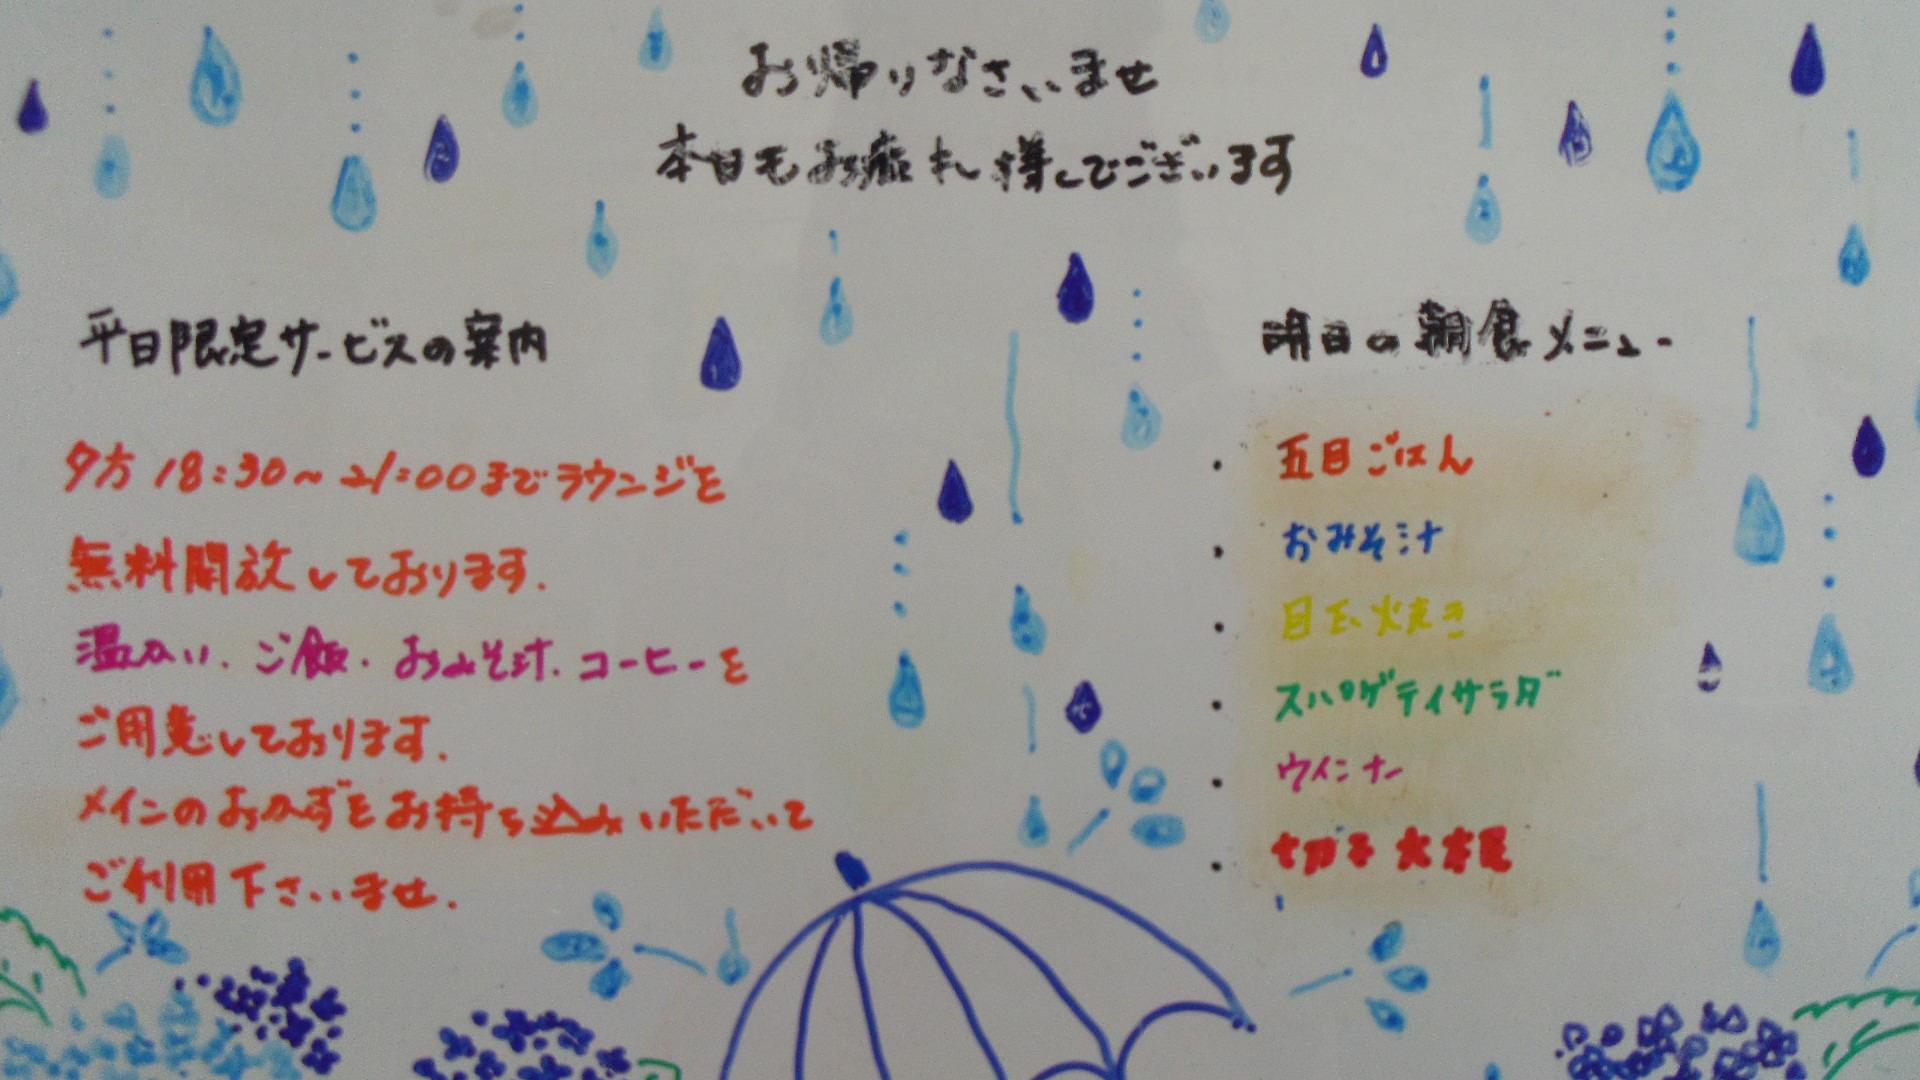 お帰りなさいませ
本日もお疲れ様でございます
平日限定サービスの案内
夕方18:30～21:00までラウンジを
無料開放しております.
温かい.ご飯.おみそ汁.コーヒーを
ご用意しております.
メインのおかずをお持ち込みいただいて
ご利用下さいませ.
明日の朝食メニュー
・五目ごはん
・おみそ汁
・目玉焼き
・スパゲティサラダ
・ウインナー
・切干大根